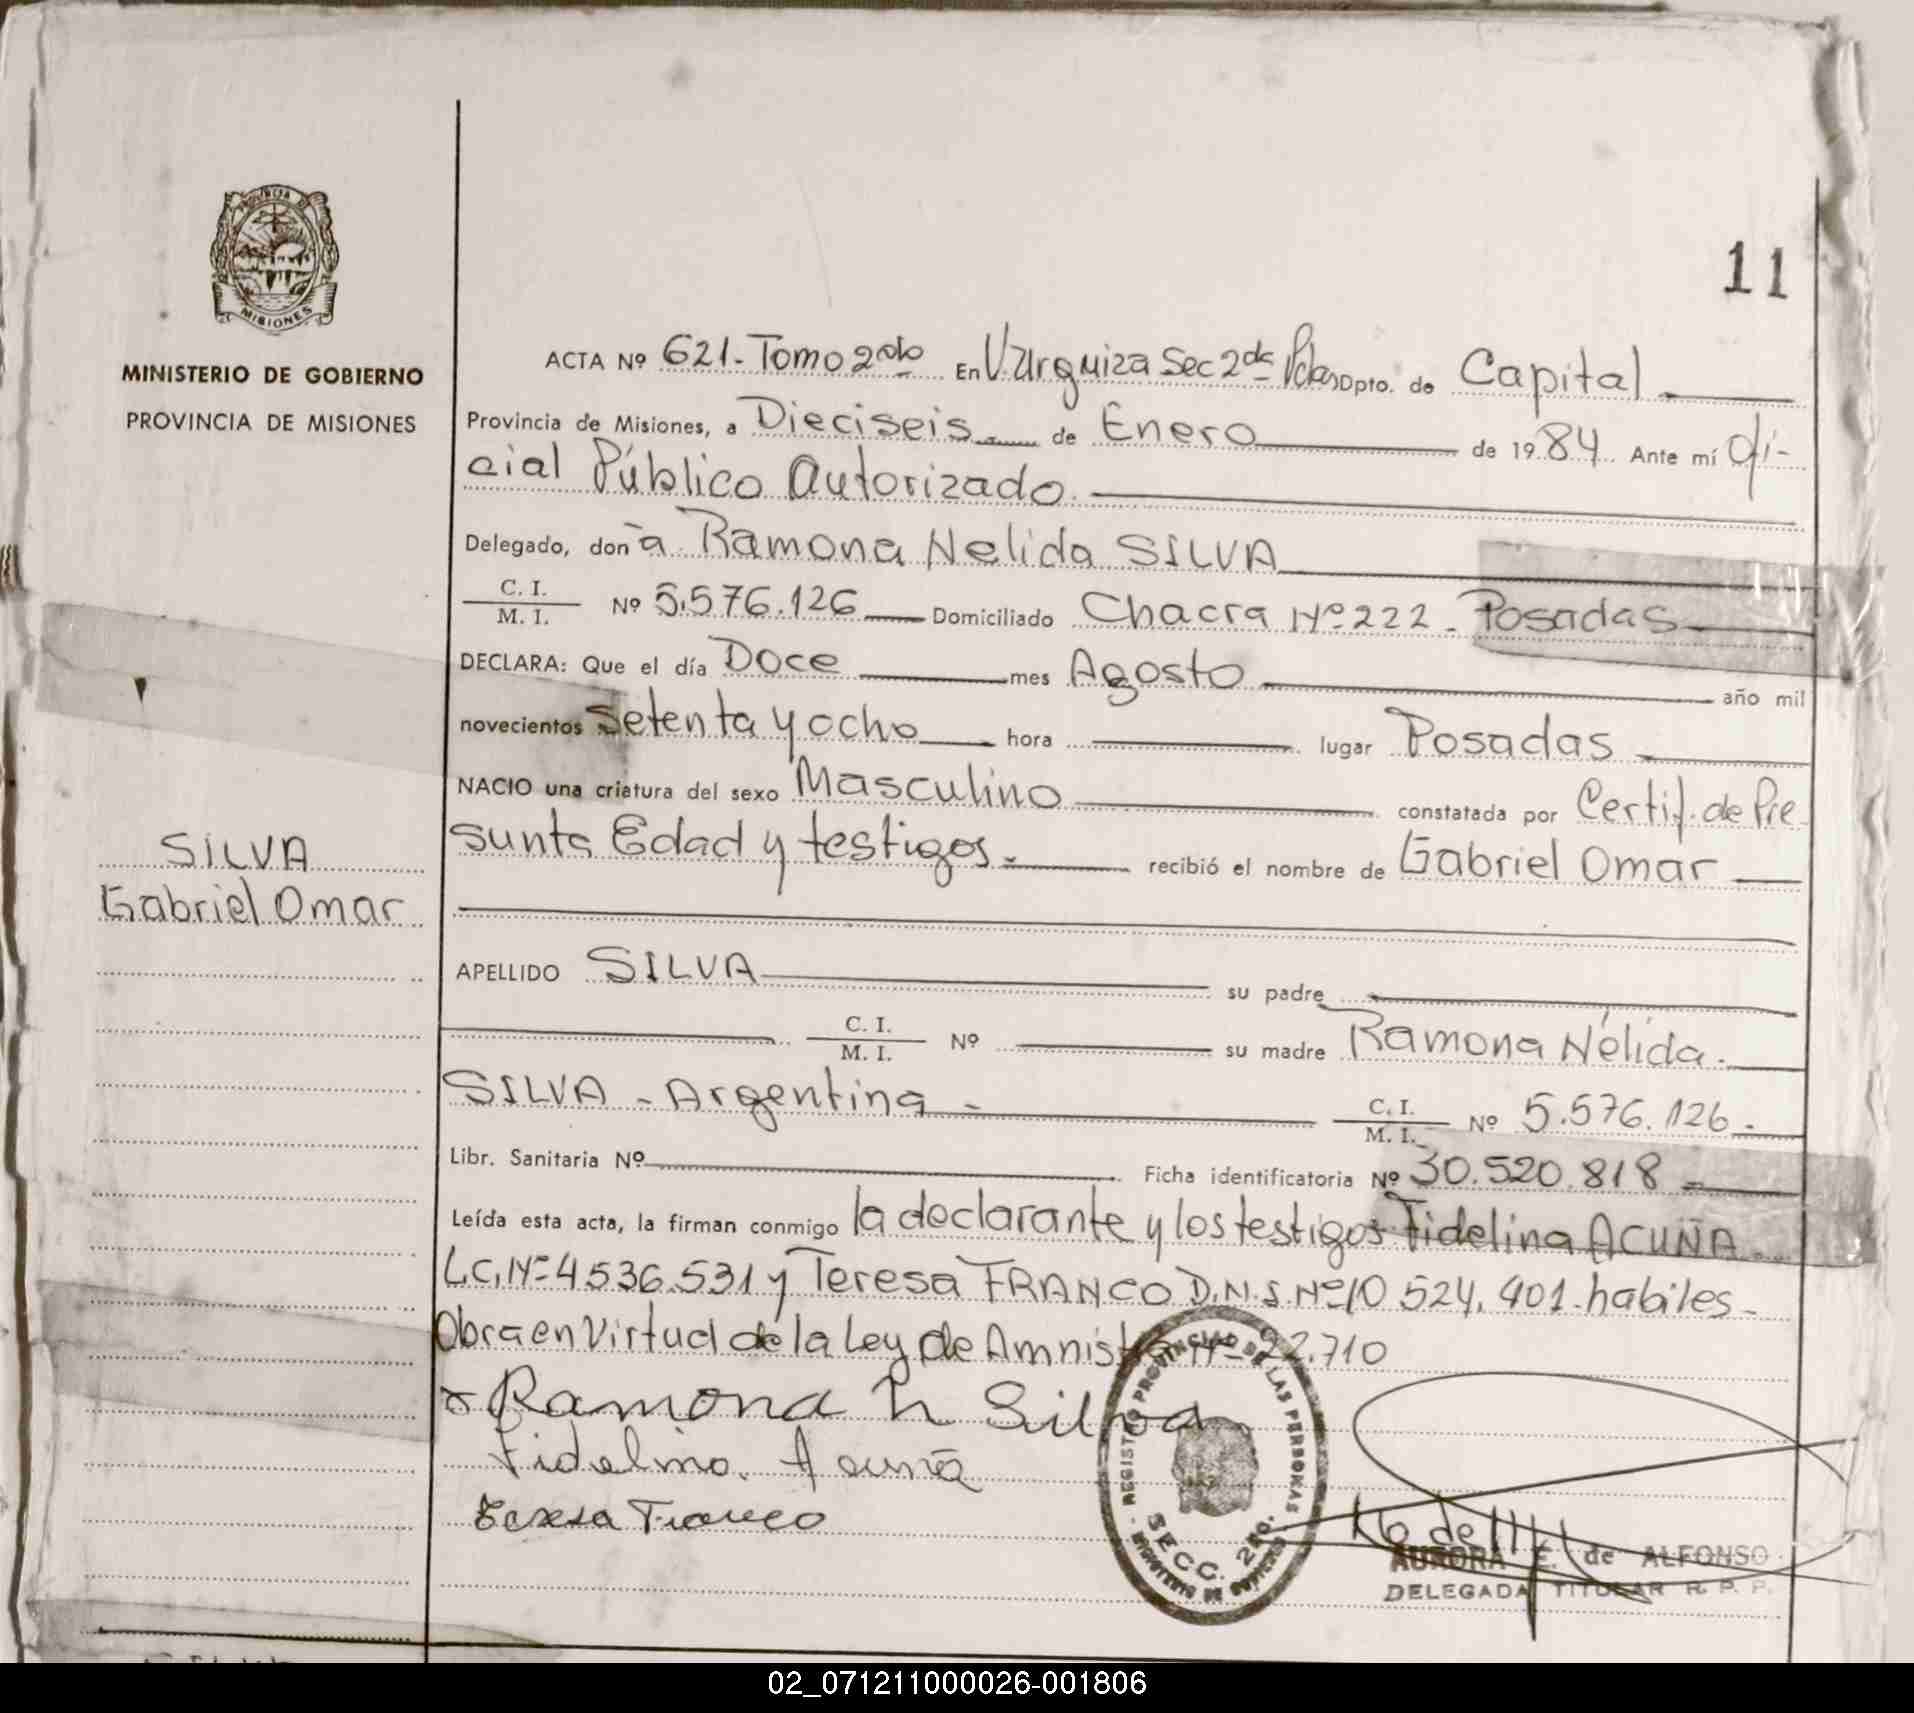 11
PROVINCIA DE
MISIONES
MINISTERIO DE GOBIERNO
PROVINCIA DE MISIONES
ACTA Nº 621-Tomo 2do En V. Urquiza Sec 2da Pdas Dpto. de Capital
Provincia de Misiones, a Dieciseis de Enero de 1984. Ante mí Ofi-
cial Público Autorizado.
Delegado, don a Ramona Nelida SILVA
C. I.
M. I. Nº 5.576.126 Domiciliado Chacra Nº 222 - Posadas
DECLARA: Que el día Doce mes Agosto año mil
novecientos Setenta y ocho hora lugar Posadas
NACIO una criatura del sexo Masculino constatada por Certif. de Pre
sunta Edad y testigos. recibió el nombre de Gabriel Omar
SILVA
Gabriel Omar
APELLIDO SILVA su padre
C. I.
M. I. Nº su madre Ramona Nélida.
SILVA - Argentina - C. I.
M. I. Nº 5.576.126.
Libr. Sanitaria Nº Ficha identificatoria Nº 30.520.818
Leída esta acta, la firman conmigo la declarante y los testigos Fidelina ACUÑA
L.C. Nº 4536.531 y Teresa FRANCO D.N.I. Nº 10 524.401 - habiles -
Obra en Virtud de la Ley de Amnistía Nº 22.710
Ramona N Silva
Fidelina Acuña
Teresa Franco
REGISTRO PROVINCIAL DE LAS PERSONAS
SECC. 2DA.
MINISTERIO DE GOBIERNO
AURORA E. de ALFONSO
DELEGADA TITULAR R. P. P.
02_071211000026-001806